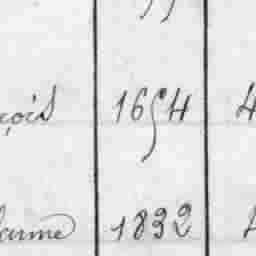 çois 1654 4
laume 1832